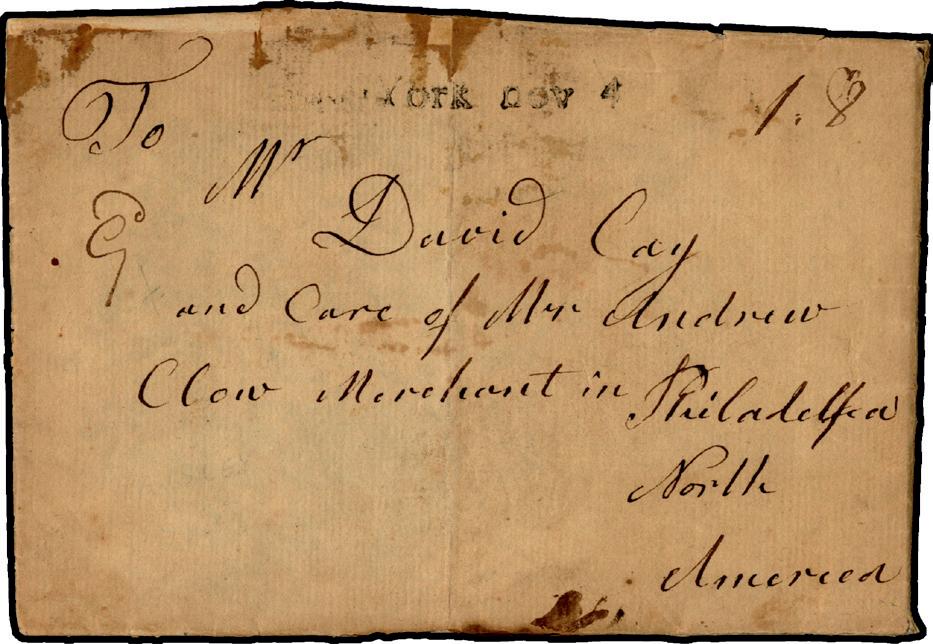 York nov 4
1: 8
To
Mr
David Cay
and Care of Mr Andrew
Clow Merchant in Philadelfea
North
America